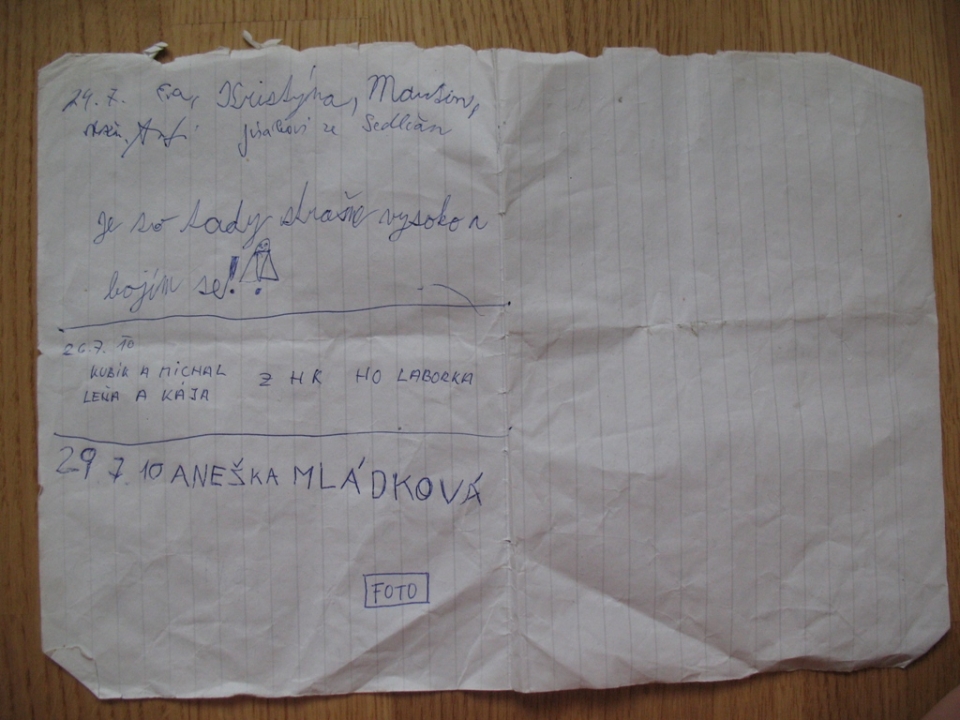 24.7. Eva, Kristýna, Martin,
ze Sedlčan
Je to tady strašně vysoko a
bojím se!
26.7. 10
KUBÍK A MICHAL
Z HK HO LABORKA
LEŇA A KÁJA
29 7. 10 ANEŠKA MLÁDKOVÁ
FOTO